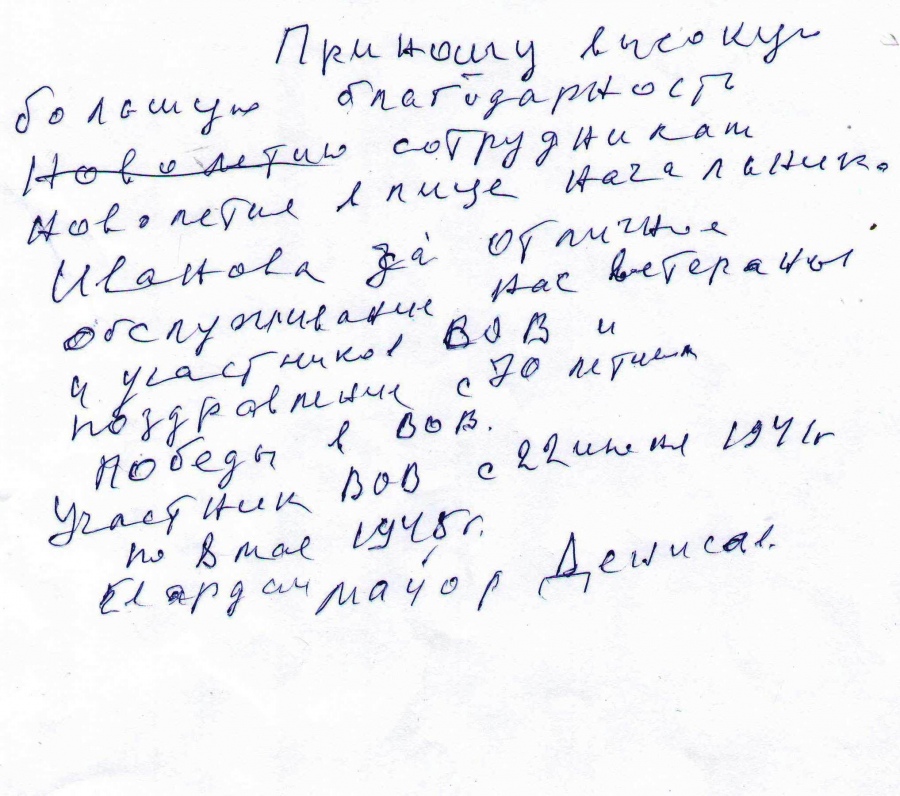 Приношу высокую
большую благодарность
Новолетию сотрудникам
Новолетие в лице начальника
Иванова за отличное
обслуживание нас ветераны
и участников ВОВ и
поздравление с 70 летием
Победы в ВОВ.
Участник ВОВ с 22 июня 1941г
по 8 мае 1945г.
майор Денисов.